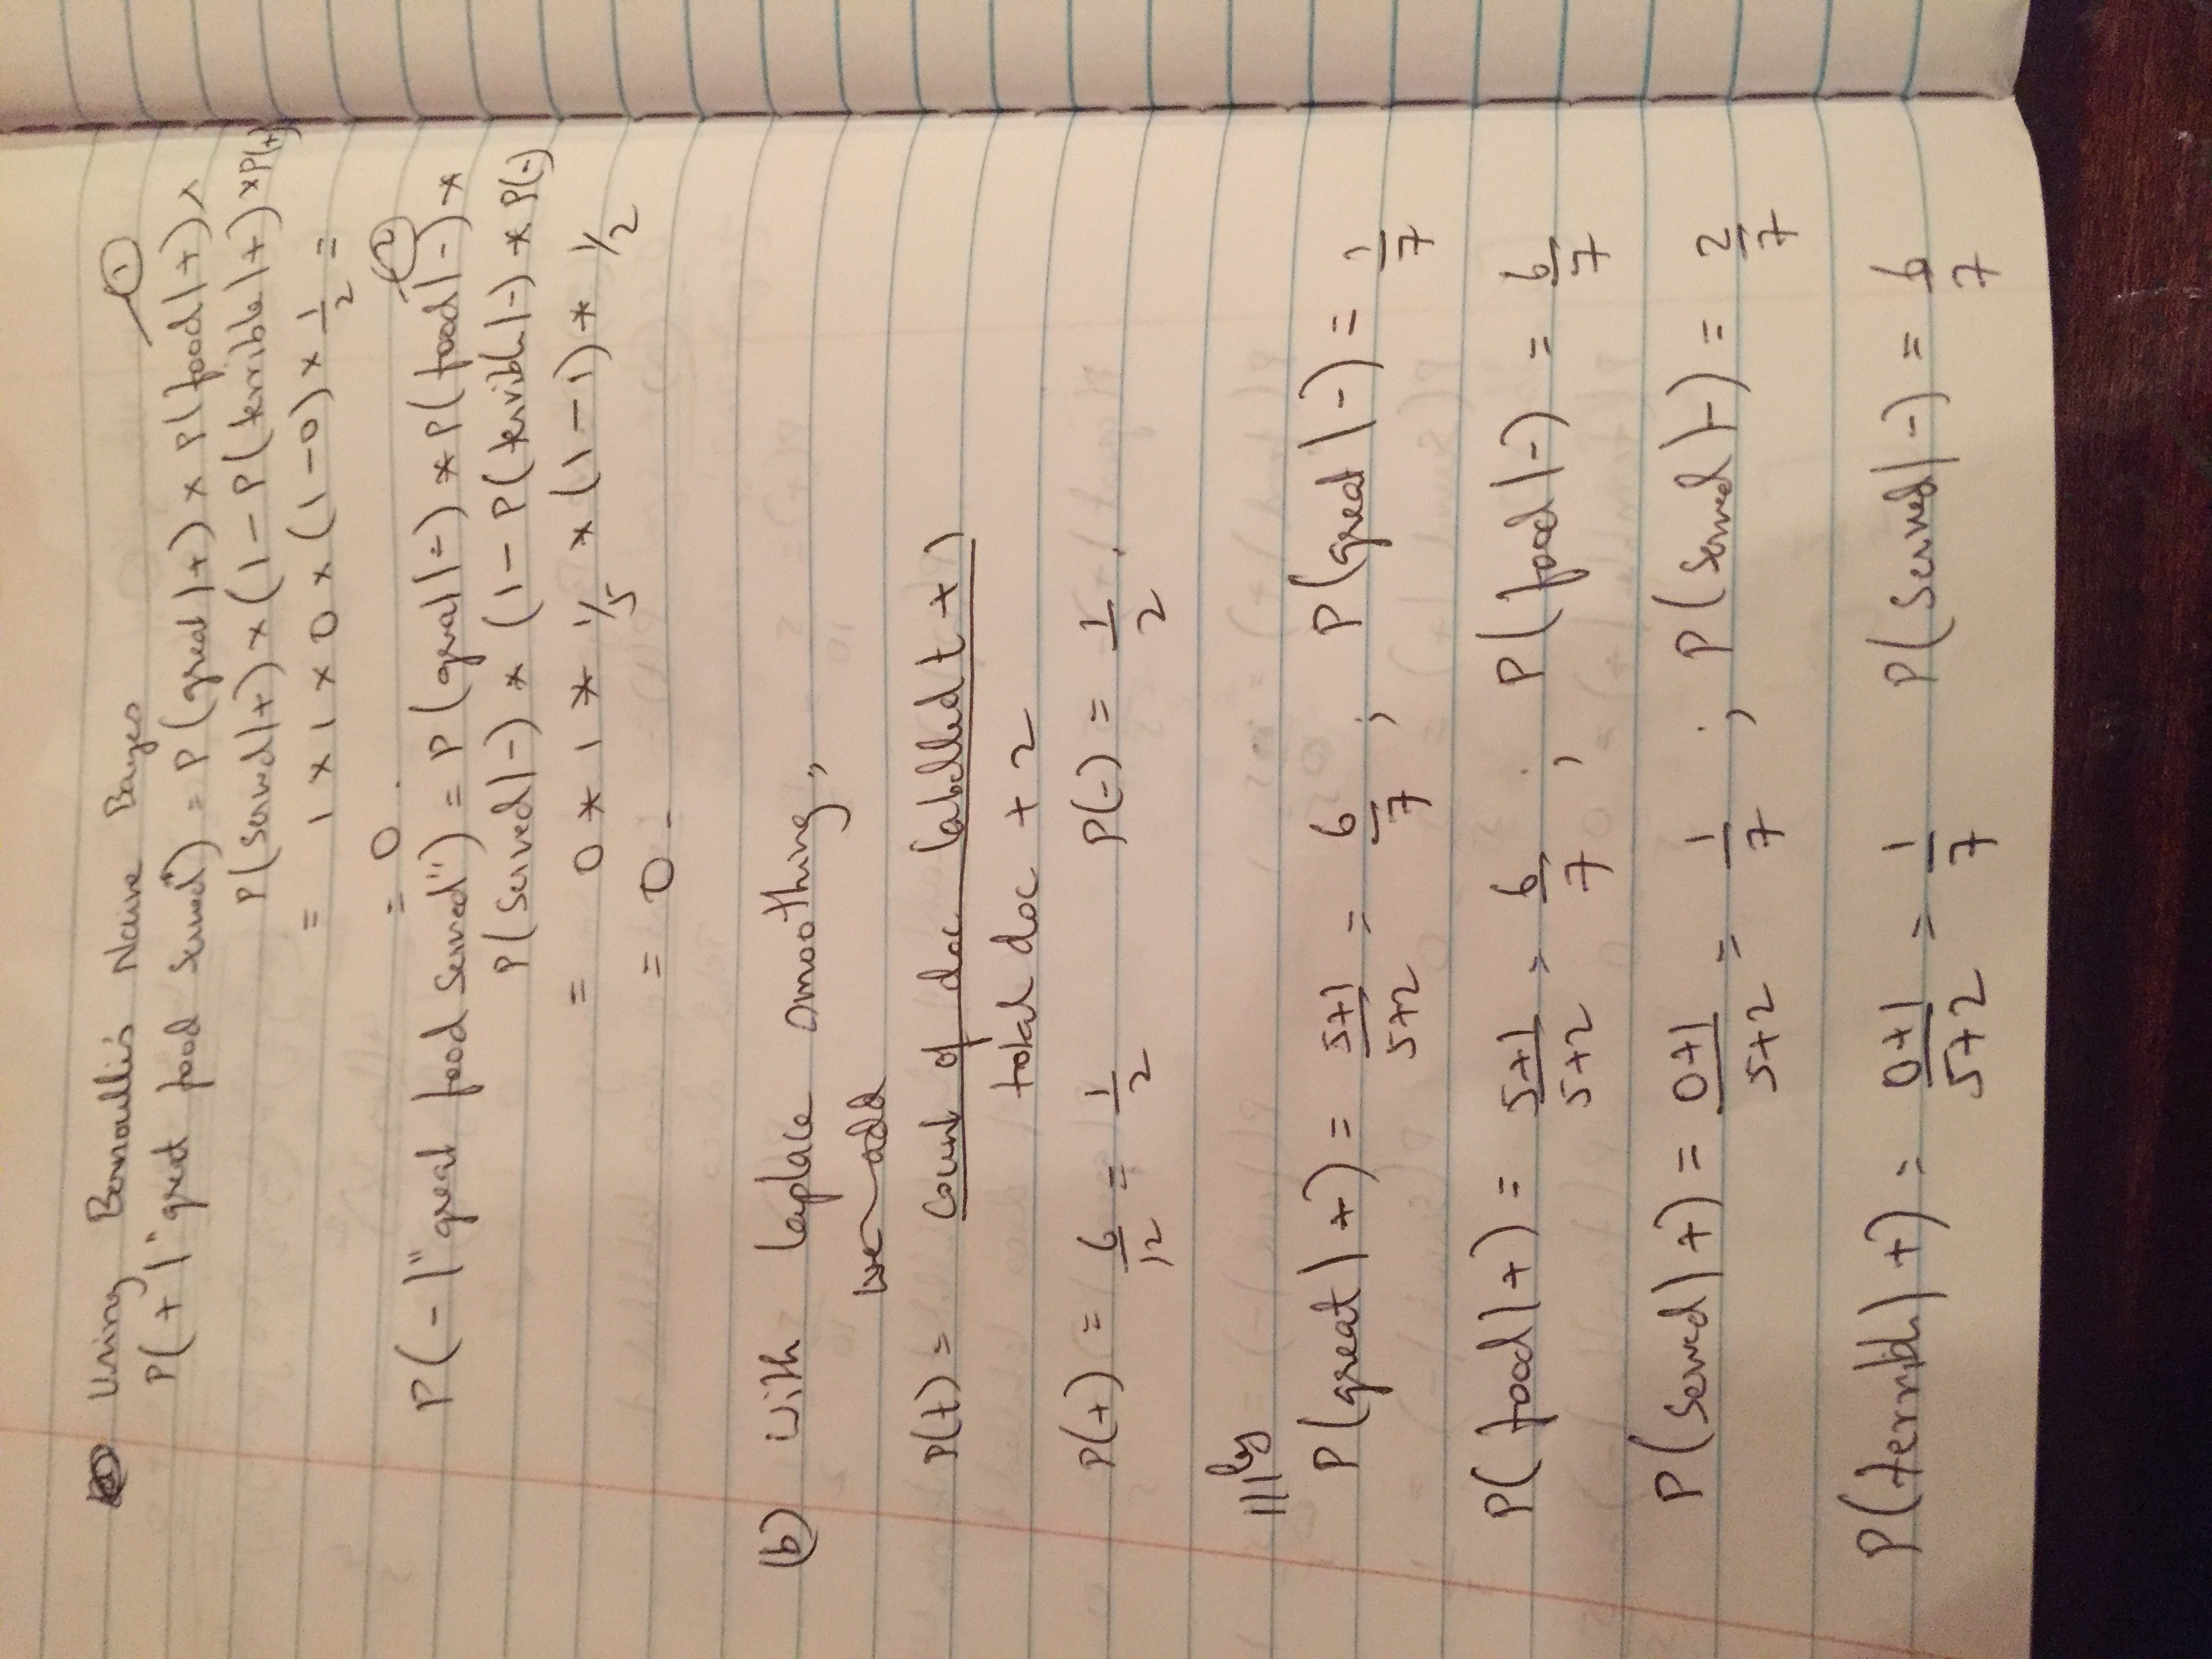 Using Bernoulli's Naive Bayes
①
P(+|"great food served") = P(great|+) × P(food|+) ×
P(served|+) × (1 – P(terrible|+) × P(+)
= 1 × 1 × 0 × (1 – 0) × 1/2 =
= 0.
②
P(-|"great food served") = P(great|-) * P(food|-) *
P(served|-) * (1 – P(terrible|-) * P(-)
= 0 * 1 * 1/5 * (1 – 1) * 1/2
= 0 -
(b) With laplace smoothing,
we add
P(t) = count of doc labelled t + 1
total doc + 2
P(+) = 6/12 = 1/2 P(-) = 1/2 .
|||ly
P(great|+) = 5+1/5+2 = 6/7 ; P(great|-) = 1/7
P(food|+) = 5+1/5+2 = 6/7 ; P(food|-) = 6/7
P(served|+) = 0+1/5+2 = 1/7 ; P(served|-) = 2/7
P(terrible|+) = 0+1/5+2 = 1/7 P(served|-) = 6/7